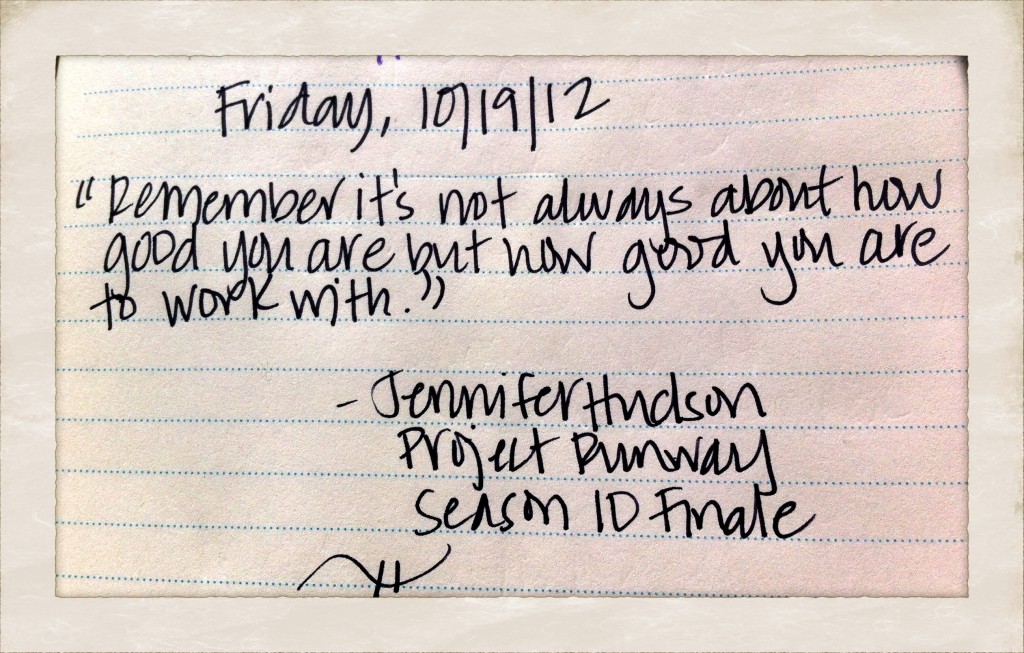 Friday, 10/19/12
"Remember it's not always about how
good you are but how good you are
to work with."
- Jennifer Hudson
Project Runway
Season 10 Finale